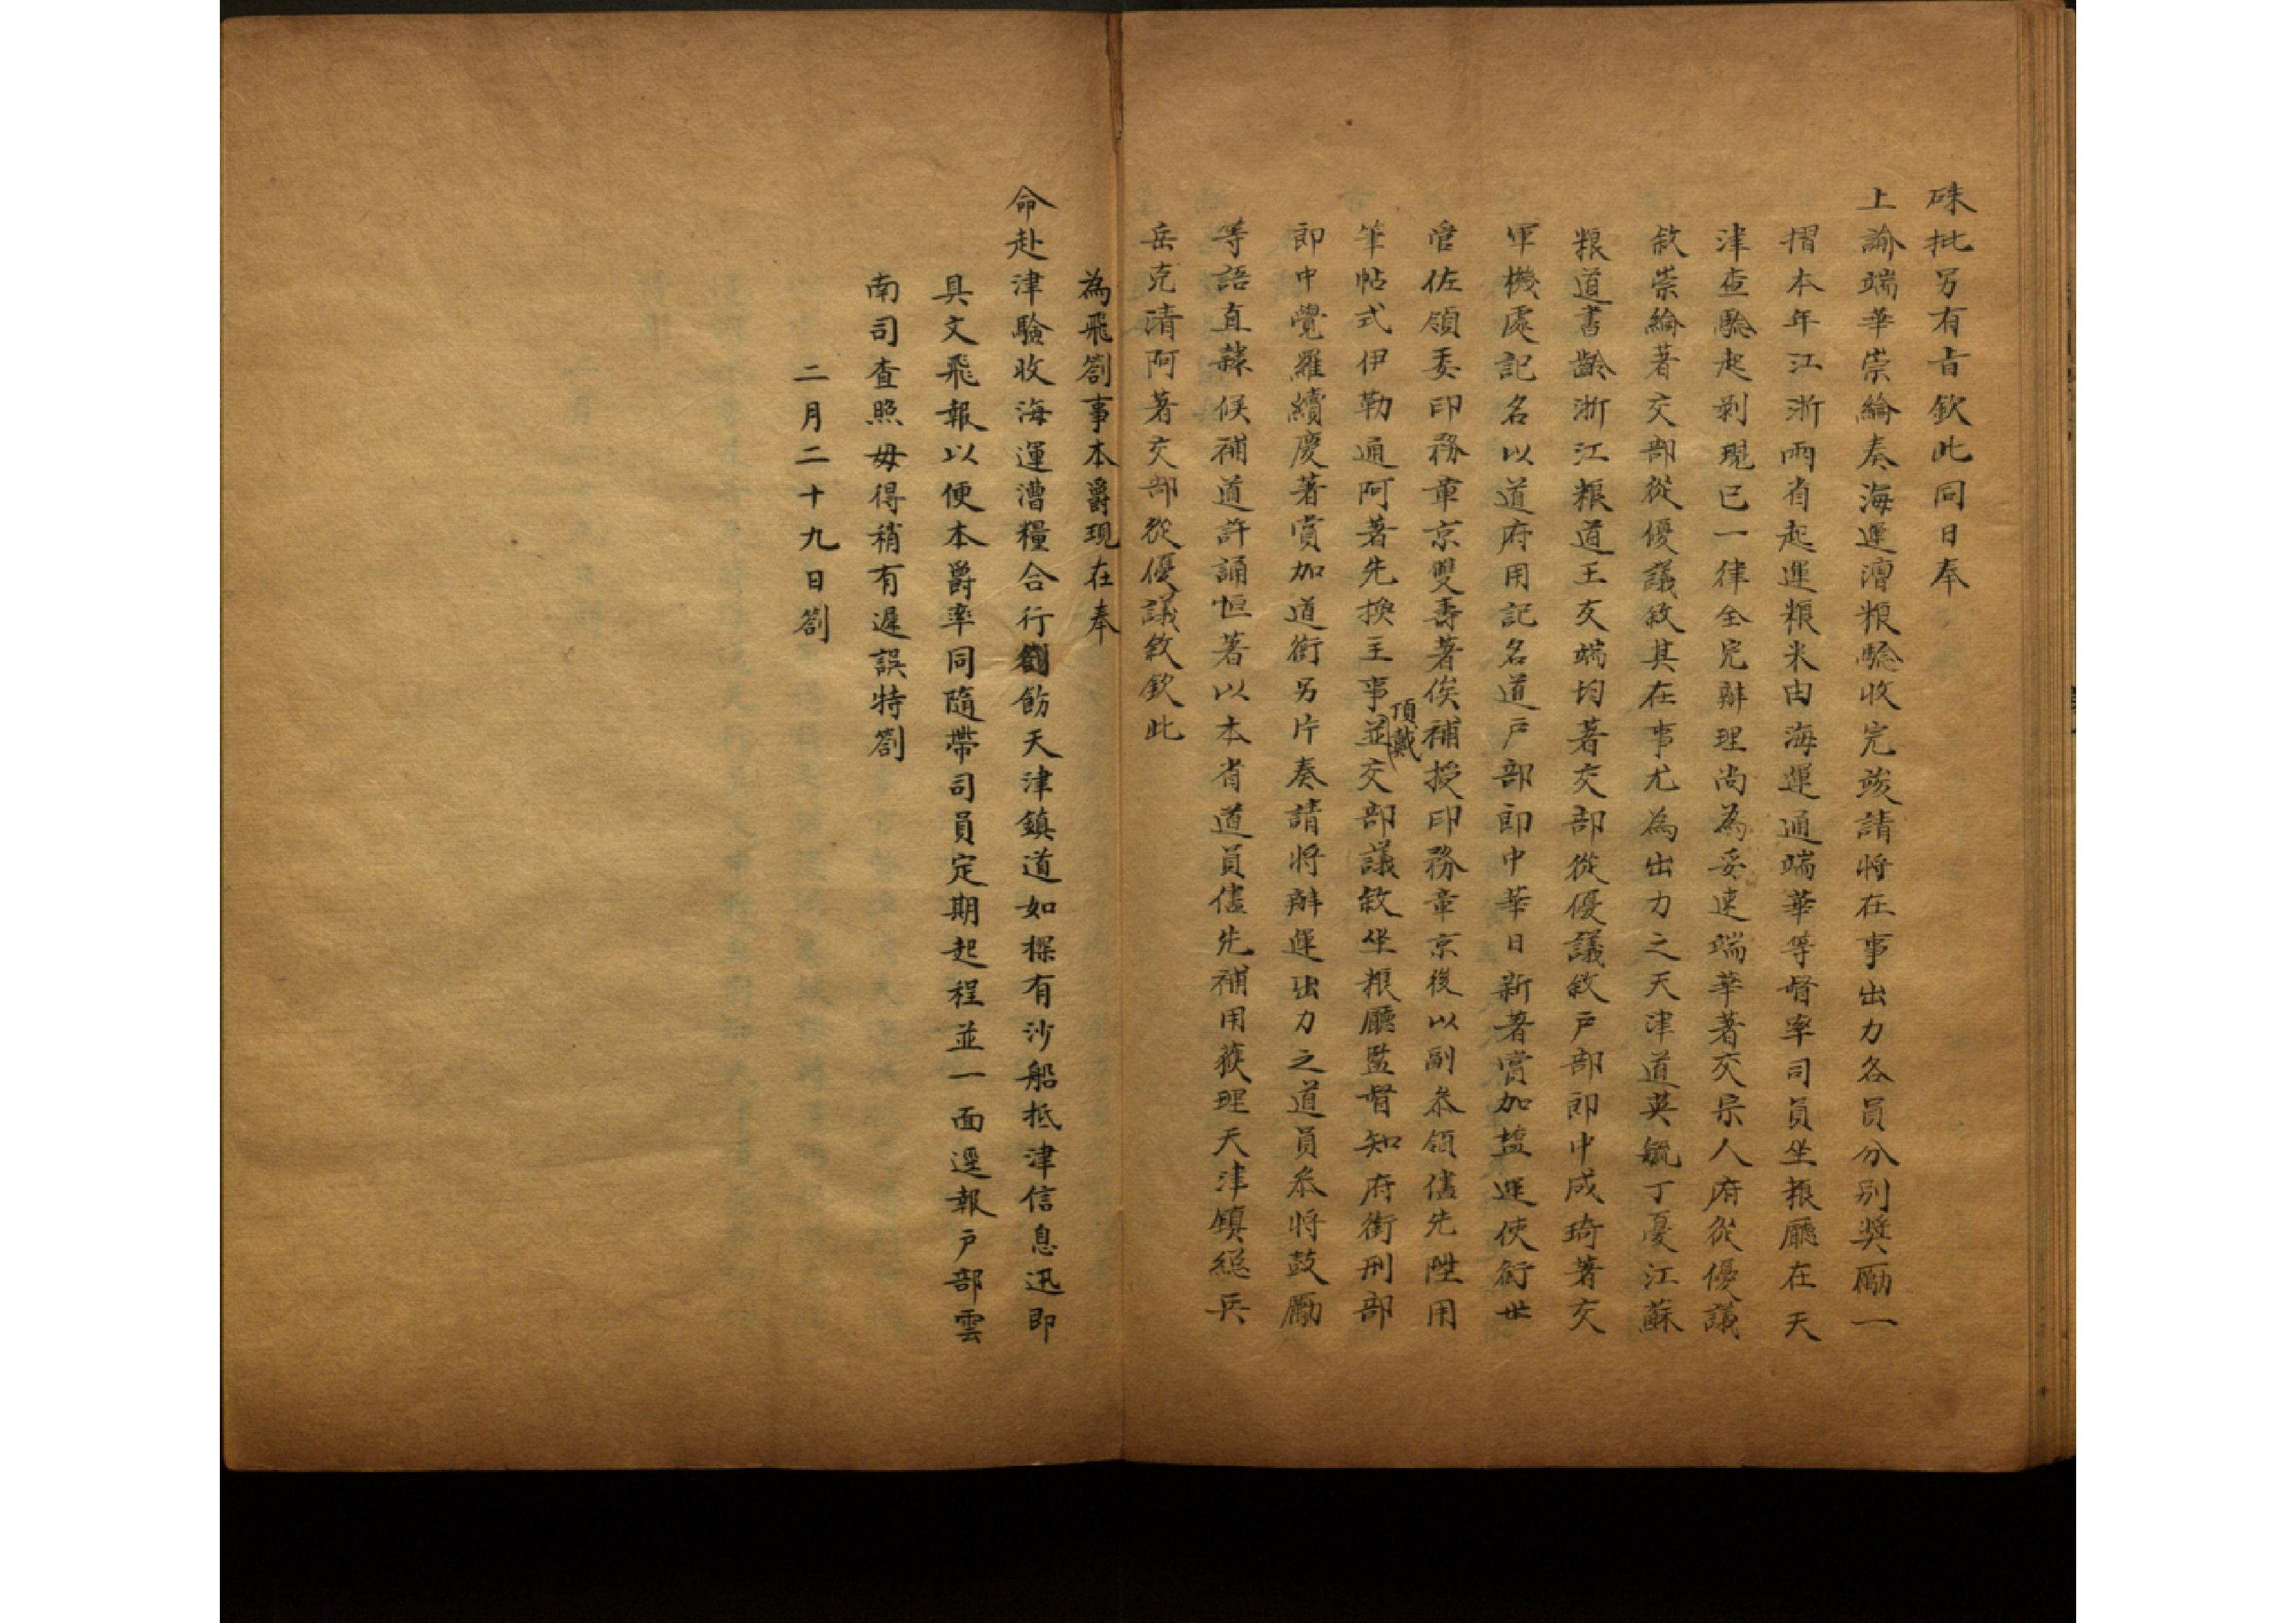 硃批另有旨欽此同日奉
上諭端華崇綸奏海運漕粮騐收完竣請將在事出力各員分別奬勵一
摺本年江浙兩省起運粮米由海運通端華等督率司員坐粮廳在天
津查騐起剥現已一律全完辦理尚為妥速端華著交宗人府從優議
敘崇綸著交部從優議敘其在事尤為出力之天津道英毓丁憂江蘇
粮道書齡浙江粮道王友端均著交部從優議敘戶部郎中成琦著交
軍機處記名以道府用記名道戶部郎中華日新著賞加塩運使銜世
管佐領委印務章京雙壽著俟補授印務章京後以副叅領儘先陞用
筆帖式伊勒通阿著先換主事頂戴並交部議敘坐粮廳監督知府銜刑部
郎中覺羅續慶著賞加道銜另片奏請將辦運出力之道員叅將鼓勵
等語直隸候補道許誦恒著以本省道員儘先補用護理天津鎮總兵
岳克清阿著交部從優議敘欽此
為飛劄事本爵現在奉
命赴津驗收海運漕糧合行劄飭天津鎮道如探有沙船抵津信息迅即
具文飛報以便本爵率同隨帶司員定期起程並一面逕報戶部雲
南司查照毋得稍有遲誤特劄
二月二十九日劄